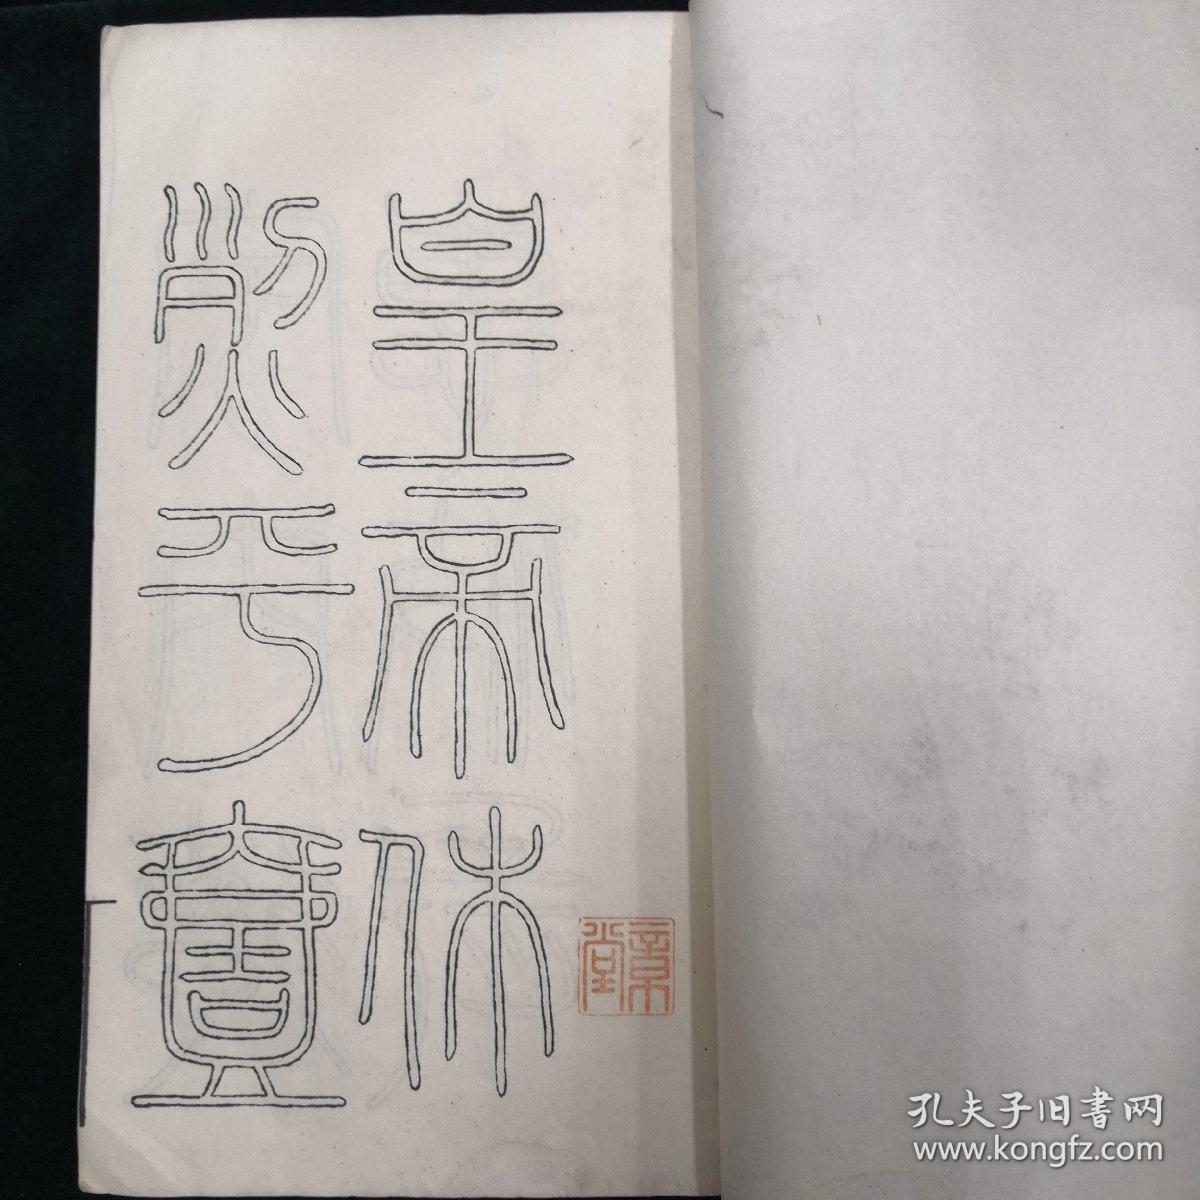 皇帝休
烈平壹
孔夫子旧书网
www.kongfz.com